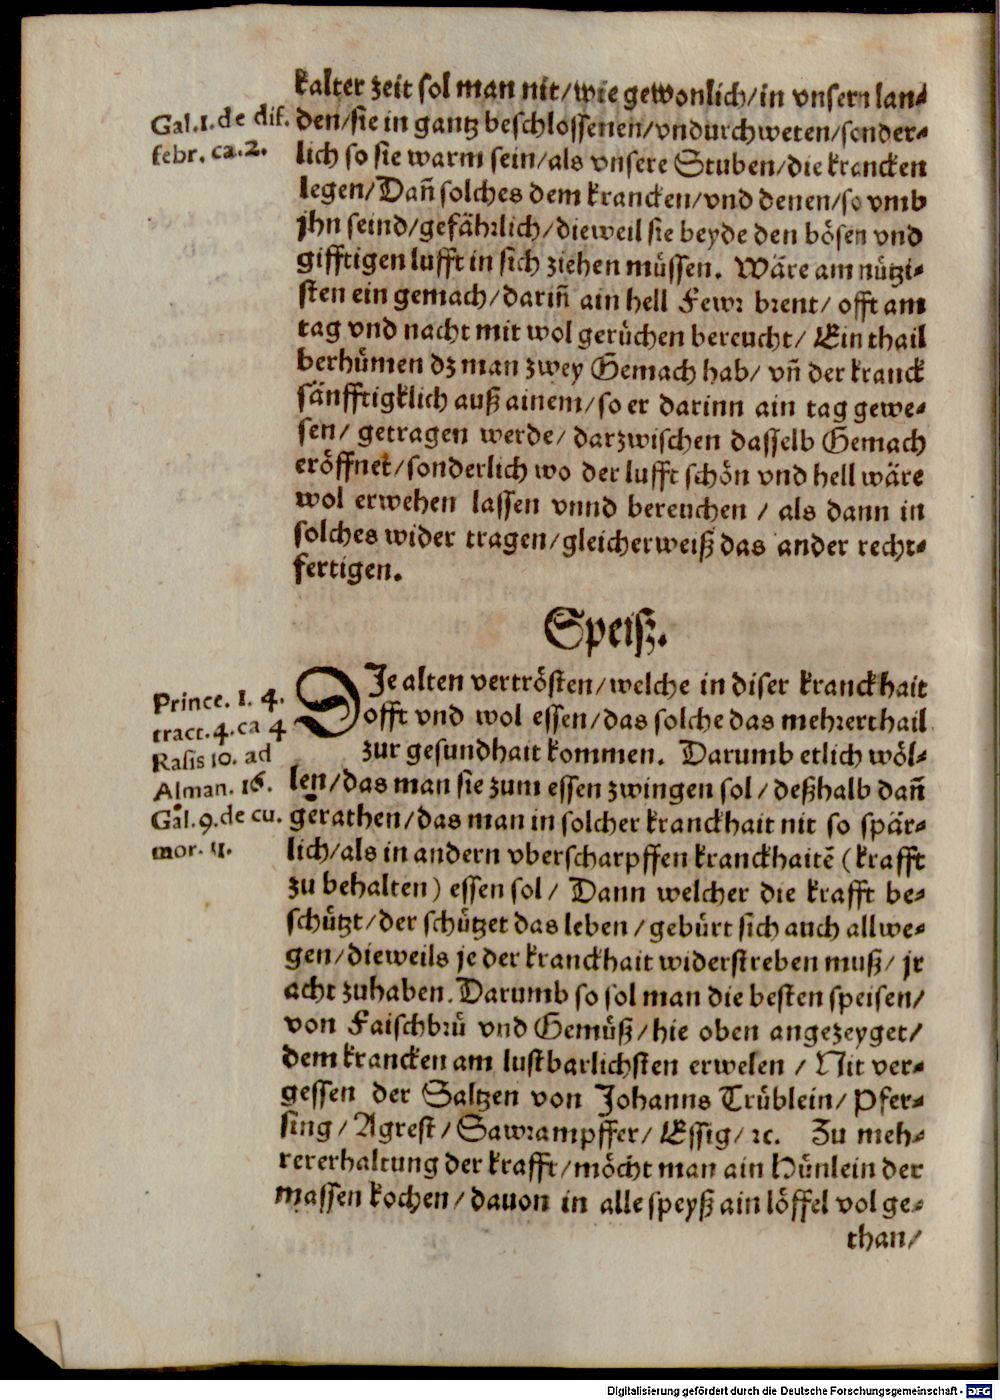 kalter zeit sol man nit/wie gewonlich/in vnsern lan⸗
Gal.1.de dif.
febr. ca.2.
den/sie in gantz beschlossenen/vndurchweten/sonder⸗
lich so sie warm sein/als vnsere Stuben/die krancken
legen/Dañ solches dem krancken/vnd denen/so vmb
jhn seind/gefährlich/dieweil sie beyde den bösen vnd
gifftigen lufft in sich ziehen müssen. Wäre am nützi⸗
sten ein gemach/dariñ ain hell Fewr brent/ offt am
tag vnd nacht mit wol gerüchen bereucht/ Ein thail
berhümen dz man zwey Gemach hab/ vñ der kranck
sänfftigklich auß ainem/so er darinn ain tag gewe⸗
sen/ getragen werde/ darzwischen dasselb Gemach
eröffnet/sonderlich wo der lufft schön vnd hell wäre
wol erwehen lassen vnnd bereuchen / als dann in
solches wider tragen/gleicherweiß das ander recht⸗
fertigen.
Speiß.
Prince. 1. 4.
tract.4.ca 4
Rasis 10. ad
Alman. 16.
Gal.9.de cu.
mor. 11.
DIe alten vertrösten/welche in diser kranckhait
offt vnd wol essen/das solche das mehrerthail
zur gesundhait kommen. Darumb etlich wöl⸗
len/das man sie zum essen zwingen sol/deßhalb dañ
gerathen/das man in solcher kranckhait nit so spär⸗
lich/als in andern vberscharpffen kranckhaitē (krafft
zu behalten) essen sol/ Dann welcher die krafft be⸗
schützt/der schützet das leben/gebürt sich auch allwe⸗
gen/dieweils je der kranckhait widerstreben muß/ jr
acht zuhaben. Darumb so sol man die besten speisen/
von Faischbrü vnd Gemüß/hie oben angezeyget/
dem krancken am lustbarlichsten erwelen / Nit ver⸗
gessen der Saltzen von Johanns Trüblein/ Pfer⸗
sing/Agrest/Sawrampffer/ Essig/ ꝛc. Zu meh⸗
rererhaltung der krafft/möcht man ain Hünlein der
massen kochen/dauon in alle speyß ain löffel vol ge⸗
than/
Digitalisierung gefördert durch die Deutsche Forschungsgemeinschaft - DFG